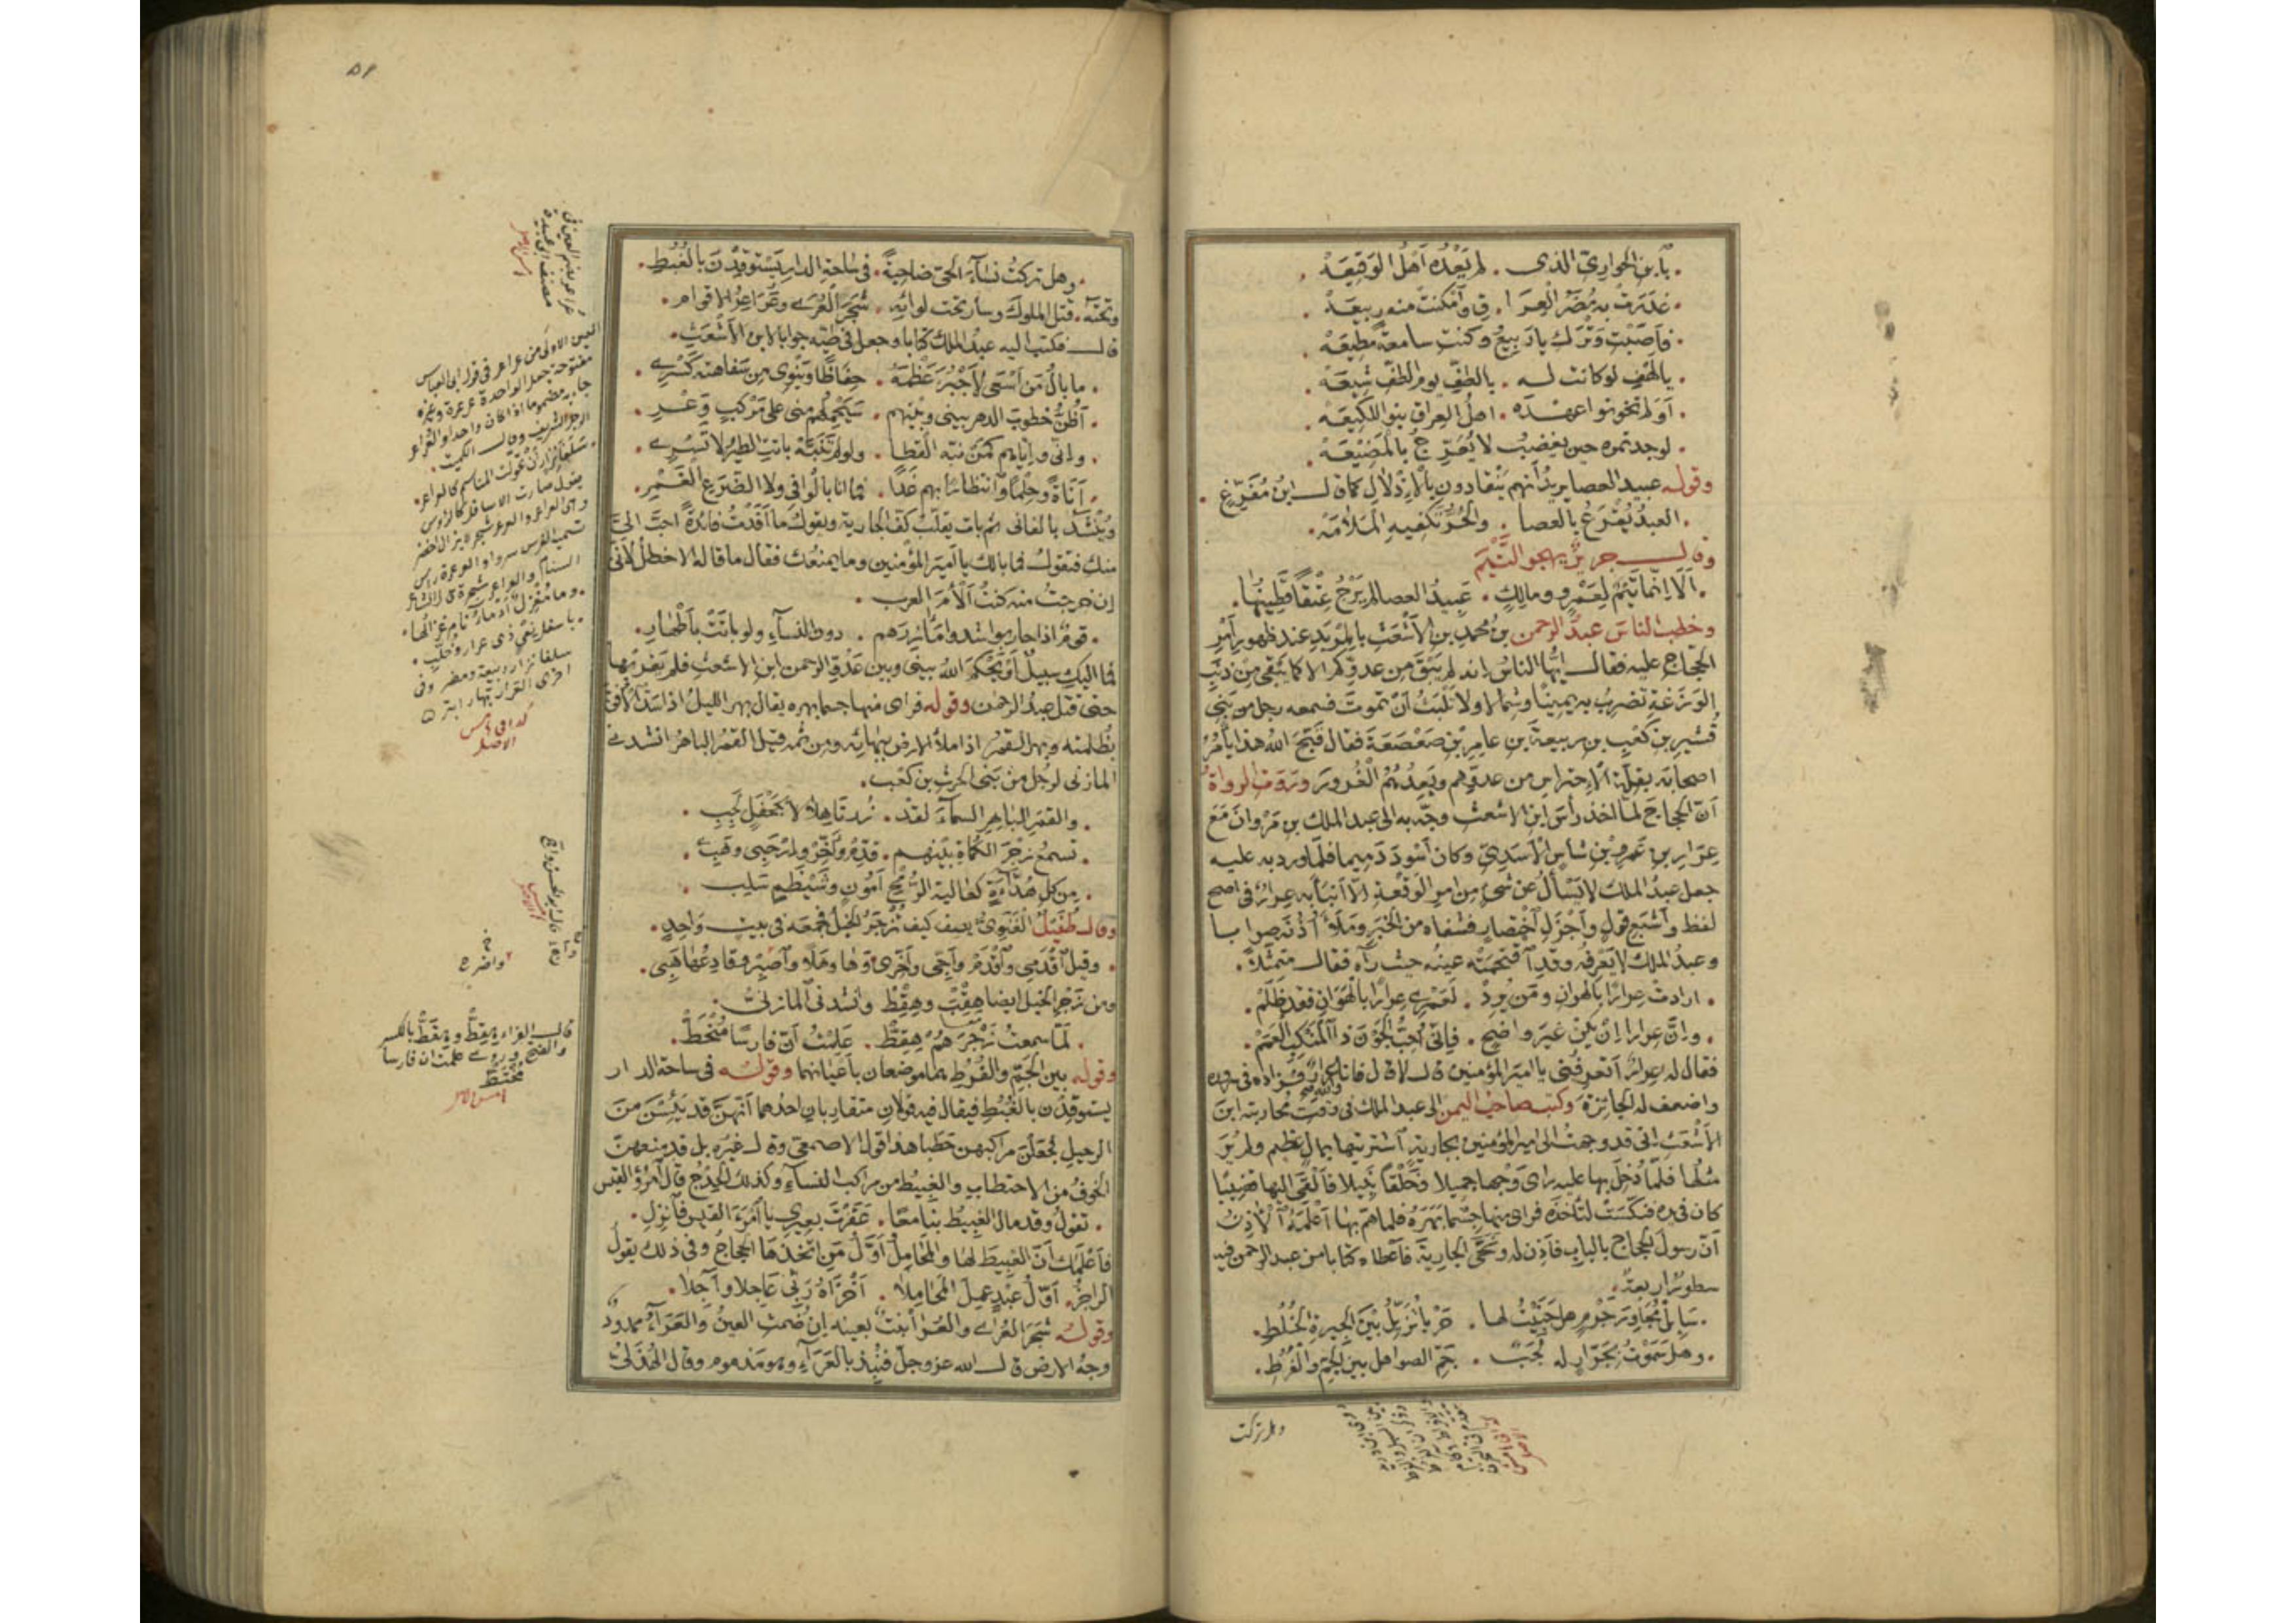 يابن الحواري الذي . لم يعده اهل الوقيعه
غدرت به مضر العرا . ق وامكنت منه ربيعه
فاصبت وترك يا ربيع وكنت سامعة مطيعه
يا لهف لو كانت له . بالطف يوم الطف شيعه
او لم تخونوا عهده . اهل العراق بنو اللكيعه
لوجدتموه حين يغضب لا يعرج بالمضيعه
وقوله عبيد العصا يريد انهم ينقادون بالاذلال كما قال ابن مفرغ
العبد يقرع بالعصا . والحر تكفيه الملامه
وقال جرير يهجو التيم
الا انما تيم لعمرو ومالك . عبيد العصا لم يرج عتقا قطينها
وخطب الناس عبد الرحمن بن محمد بن الاشعث بالمربد عند ظهور امر
الحجاج عليه فقال ايها الناس انه لم يبق من عدوكم الا كما يبقى من ذنب
الوزغة تضرب به يمينا وشمالا ولا تلبث ان تموت فسمعه رجل من بني
قشير بن كعب بن ربيعة بن عامر بن صعصعة فقال قبح الله هذا يامر
اصحابه بقلة الاحتراس من عدوهم ويعدهم الغرور وتروى الرواة
ان الحجاج لما اخذ راس ابن الاشعث وجه به الى عبد الملك بن مروان مع
عرار بن عمرو بن شاس الاسدي وكان اسود دميما فلما ورد به عليه
جعل عبد الملك لا يسأل عن شيء من امر الوقعة الا انبأه به عرار في اصح
لفظ واشبع قول واجزل اختصار فشفاه من الخبر وملأ اذنه صوابا
وعبد الملك لا يعرفه وقد اقتحمته عينه حيث رآه فقال متمثلا
ارادت عرارا بالهوان ومن يرد . لعمري عرارا بالهوان فقد ظلم
وان عرارا ان يكن غير واضح . فاني احب الجون ذا المنكب العمم
فقال له عرار اتعرفني يا امير المؤمنين قال لا قال فانا والله عرار فزاده في سروره
واضعف له الجائزة وكتب صاحب اليمن الى عبد الملك في وقت محاربته ابن
الاشعث اني قد وجهت الى امير المؤمنين بجارية اشتريتها بمال عظيم ولم ير
مثلها فلما دخل بها عليه راى وجها جميلا وخلقا نبيلا فالقى اليها قضيبا
كان في يده فنكست لتأخذه فراى منها جسما بهره فلما هم بها اعلمه الاذن
ان رسول الحجاج بالباب فاذن له ونحى الجارية فاعطاه كتابا من عبد الرحمن فيه
سطور اربعة
سائل مجاور جرم هل جنيت لها . حربا تزيل بين الجيرة الخلط
وهل سموت بجرار له لجب . جم الصواهل بين الجم والفرط
وهل تركت
٥٨
وهل تركت نساء الحي ضاحية . في ساحة الدار يستوقدن بالغبط
وتحته . قتل الملوك وسار تحت لوائه . شجر العرى وعراعر الاقوام
قال فكتب اليه عبد الملك كتابا وجعل في طيه جوابا لابن الاشعث
ما بال من اسعى لاجبر عظمه . حفاظا وينوي من سفاهته كسري
اظن خطوب الدهر بيني وبينهم . سيحملهم مني على مركب وعر
واني واياهم كمن نبه القطا . ولو لم تنبه باتت الطير لا تسري
اناة وحلما وانتظارا بهم غدا . فما انا بالواني ولا الضرع الغمر
وينشد بالفاني ثم بات يقلب كف الجارية ويقول ما افدت فائدة احب الي
منك فتقول فما بالك يا امير المؤمنين وما يمنعك فقال ما قاله الاخطل لاني
ان خرجت منه كنت الأم العرب
قوم اذا حاربوا شدوا مآزرهم . دون النساء ولو باتت باطهار
فما اليك سبيل او يحكم الله بيني وبين عدو الرحمن ابن الاشعث فلم يقربها
حتى قتل عبد الرحمن وقوله فراى منها جسما بهره يقال بهر الليل اذا سد الافق
بظلمته وبهر القمر اذا ملأ الارض ببهائه ومن ثمه قيل القمر الباهر انشدني
المازني لرجل من بني الحرث بن كعب
والقمر الباهر السماء لقد . زرنا هلالا بجحفل لجب
تسمع زجر الكماة بينهم . قدم واخر وارحبي وهبي
من كل هداءة كعالية الرمح امون وشيظم سلب
وقال طفيل الغنوي يصف كيف تزجر الخيل فجمعه في بيت واحد
وقيل اقدمي واقدم واخى واخرى وها وهلا واصبر وقادعها هبي
ومن زجر الخيل ايضا هقب وهقط وانشدني المازني
لما سمعت زجرهم هقط . علمت ان فارسا منحط
وقوله بين الجم والفرط هما موضعان باعيانهما وقوله في ساحة الدار
يستوقدن بالغبط فيقال فيه قولان متقاربان احدهما انهن قد يئسن من
الرحيل فجعلن مراكبهن حطبا هذا قول الاصمعي وقال غيره بل قد منعهن
الخوف من الاحتطاب والغبيط من مراكب النساء وكذلك الحدج قال امرؤ القيس
تقول وقد مال الغبيط بنا معا . عقرت بعيري يا امرء القيس فانزل
فاعلمك ان الغبيط لها والمحامل اول من اتخذها الحجاج وفي ذلك يقول
الراجز . اول عبد عمل المحاملا . اخزاه ربي عاجلا وآجلا
وقوله شجر العرى والعرا نبت بعينه ان ضمت العين والعراء ممدود
وجه الارض قال الله عز وجل فنبذ بالعراء وهو مذموم وقال الهذلي
العين الاولى من عراعر في قول ابي العباس
مفتوحة جعل الواحدة عرعرة وغيره
الرجل الشريف وقال الكميت
كذا في هامش
الاصل
قال الفراء هقط وهقط بالكسر
والفتح وروى علمت ان فارسا
محتط